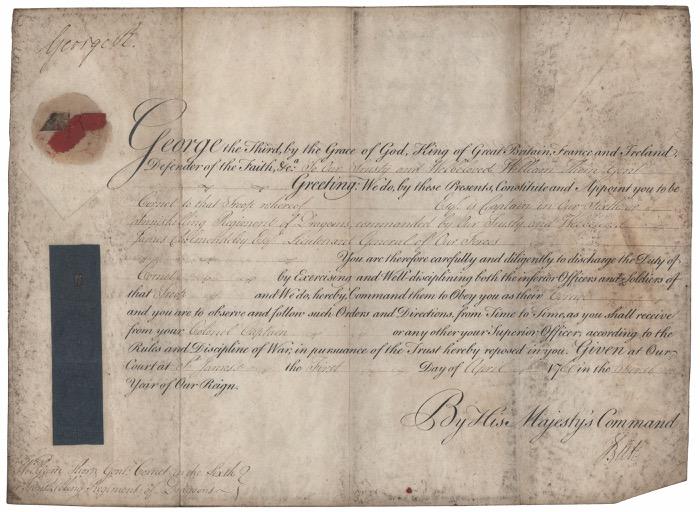 George R.
George the Third, by the Grace of God, King of Great Britain, France and Ireland,
Defender of the Faith, &c.a To Our Trusty and Welbeloved William Thorn Gent
Greeting: We do, by these Presents, Constitute and Appoint you to be
Cornet to that Troop whereof Esq. is Captain in Our Sixth or
Inniskilling Regiment of Dragoons, commanded by Our Trusty and Welbeloved
James Cholmondeley Esqr. Lieutenant General of Our Forces
You are therefore carefully and diligently to discharge the Duty of
Cornet by Exercising and Well-disciplining both the inferior Officers and Soldiers of
that Troop and We do, hereby, Command them to Obey you as their Cornet
and you are to observe and follow such Orders and Directions, from Time to Time, as you shall receive
from your Colonel Captain or any other your Superior Officer, according to the
Rules and Discipline of War, in pursuance of the Trust hereby reposed in you. Given at Our
Court at St. James's the First Day of April 176 in the
Year of Our Reign.
By His Majesty's Command
William Thorn Gent: Cornet in the Sixth or
Inniskilling Regiment of Dragoons